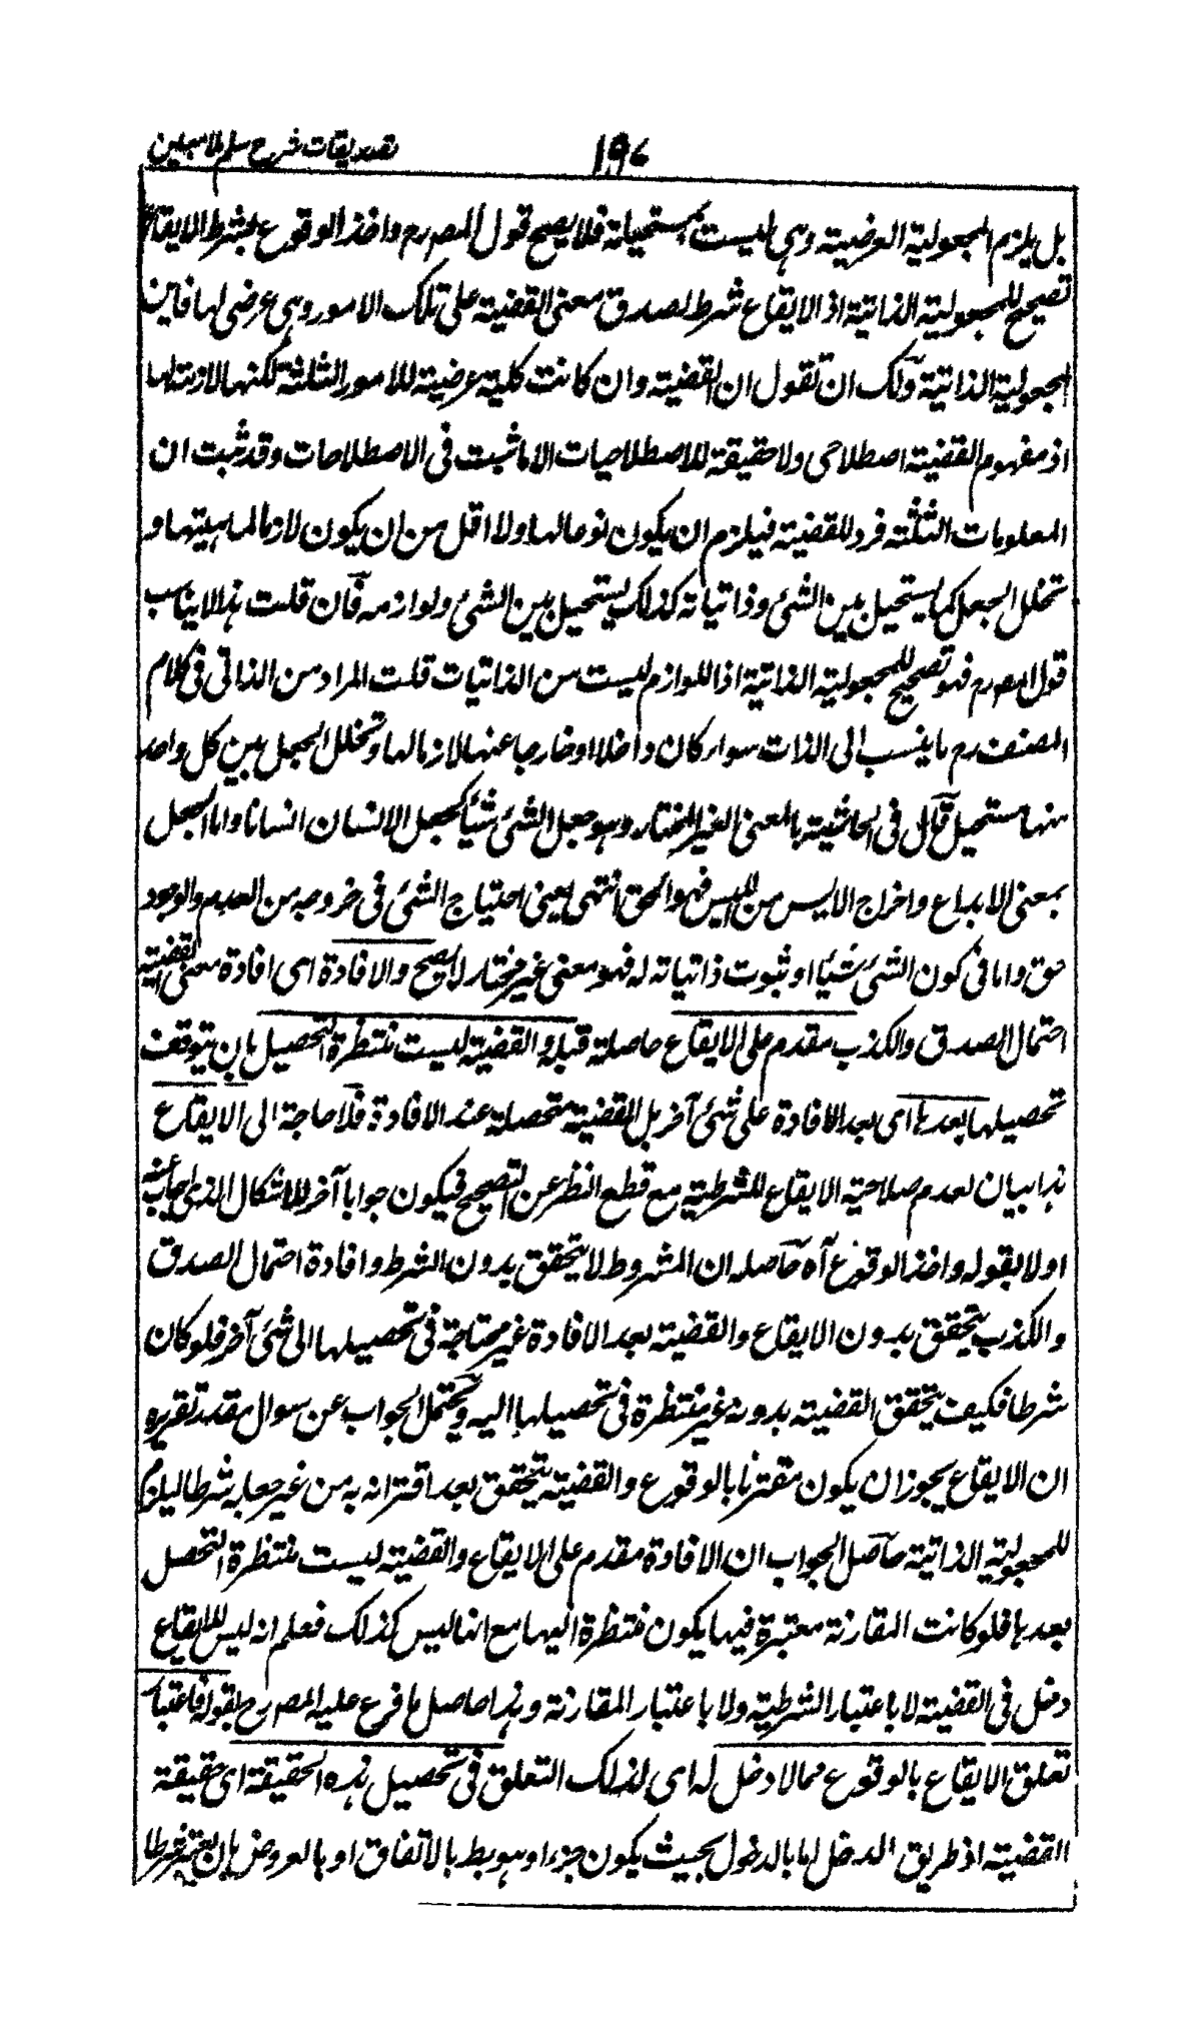 تصديقات شرح سلم ملا مبين
١٩٧
بل يلزم المجعولية العرضية وهى ليست بمستحيلة فلا يصح قول المصرم واخذ الوقوع بشرط الايقاع
تصحيح للمجعولية الذاتية اذ الايقاع شرط لصدق معنى القضية على تلك الامور وهى عرضى لها فاين
المجعولية الذاتية ولك ان تقول ان القضية وان كانت كلية عرضية للامور الثلثة لكنها لازمة لها
اذ مفهوم القضية اصطلاحى ولا حقيقة للاصطلاحيات الا ما ثبت فى الاصطلاحات وقد ثبت ان
المعلومات الثلثة فرد للقضية فيلزم ان يكون نوعا لها ولا اقل من ان يكون لازما لماهيتها و
تخلل الجعل كما يستحيل بين الشئ وذاتياته كذلك يستحيل بين الشئ ولوازمه فان قلت هذا لا يناسب
قول المصرم فهو تصحيح للمجعولية الذاتية اذ اللوازم ليست من الذاتيات قلت المراد من الذاتى فى كلام
المصنف رم ما ينسب الى الذات سواء كان داخلا او خارجا عنها لازما لها وتخلل الجعل بين كل واحد
منها مستحيل قال فى الحاشية بالمعنى الغير المختار وهو جعل الشئ شيئا كجعل الانسان انسانا واما الجعل
بمعنى الابداع واخراج الايس من الليس فهو الحق انتهى يعنى احتياج الشئ فى خروجه من العدم والوجود
حق واما فى كون الشئ شيئا او ثبوت ذاتياته له فهو معنى غير مختار لا يصح والافادة اى افادة معنى القضية
احتمال الصدق والكذب مقدم على الايقاع حاصلة قبله والقضية ليست منتظرة التحصيل بان يتوقف
تحصيلها بعدها اى بعد الافادة على شئ آخر بل القضية متحصلة عند الافادة فلا حاجة الى الايقاع
هذا بيان لعدم صلاحية الايقاع للشرطية مع قطع النظر عن التصحيح فيكون جوابا آخر للاشكال الذى اجاب عنه
اولا بقوله واخذ الوقوع آه حاصله ان المشروط لا يتحقق بدون الشرط وافادة احتمال الصدق
والكذب يتحقق بدون الايقاع والقضية بعد الافادة غير محتاجة فى تحصيلها الى شئ آخر فلو كان
شرطا فكيف يتحقق القضية بدونه غير منتظرة فى تحصيلها اليه ويحتمل الجواب عن سوال مقدر تقريره
ان الايقاع يجوز ان يكون مقترنا بالوقوع والقضية يتحقق بعد اقترانه به من غير جعله شرطا ليلزم
للمجعولية الذاتية حاصل الجواب ان الافادة مقدم على الايقاع والقضية ليست منتظرة التحصل
بعدها فلو كانت المقارنة معتبرة فيها يكون منتظرة اليها مع انها ليس كذلك فعلم انه ليس للايقاع
دخل فى القضية لا باعتبار الشرطية ولا باعتبار المقارنة وهذا حاصل ما فرع عليه المصرح بقوله فاعتبار
تعلق الايقاع بالوقوع مما لا دخل له اى لذلك التعلق فى تحصيل هذه الحقيقة اى حقيقة
القضية اذ طريق الدخل اما بالدخول بحيث يكون جزءا وهو بط بالاتفاق او بالعروض بان يعتبر شرطا